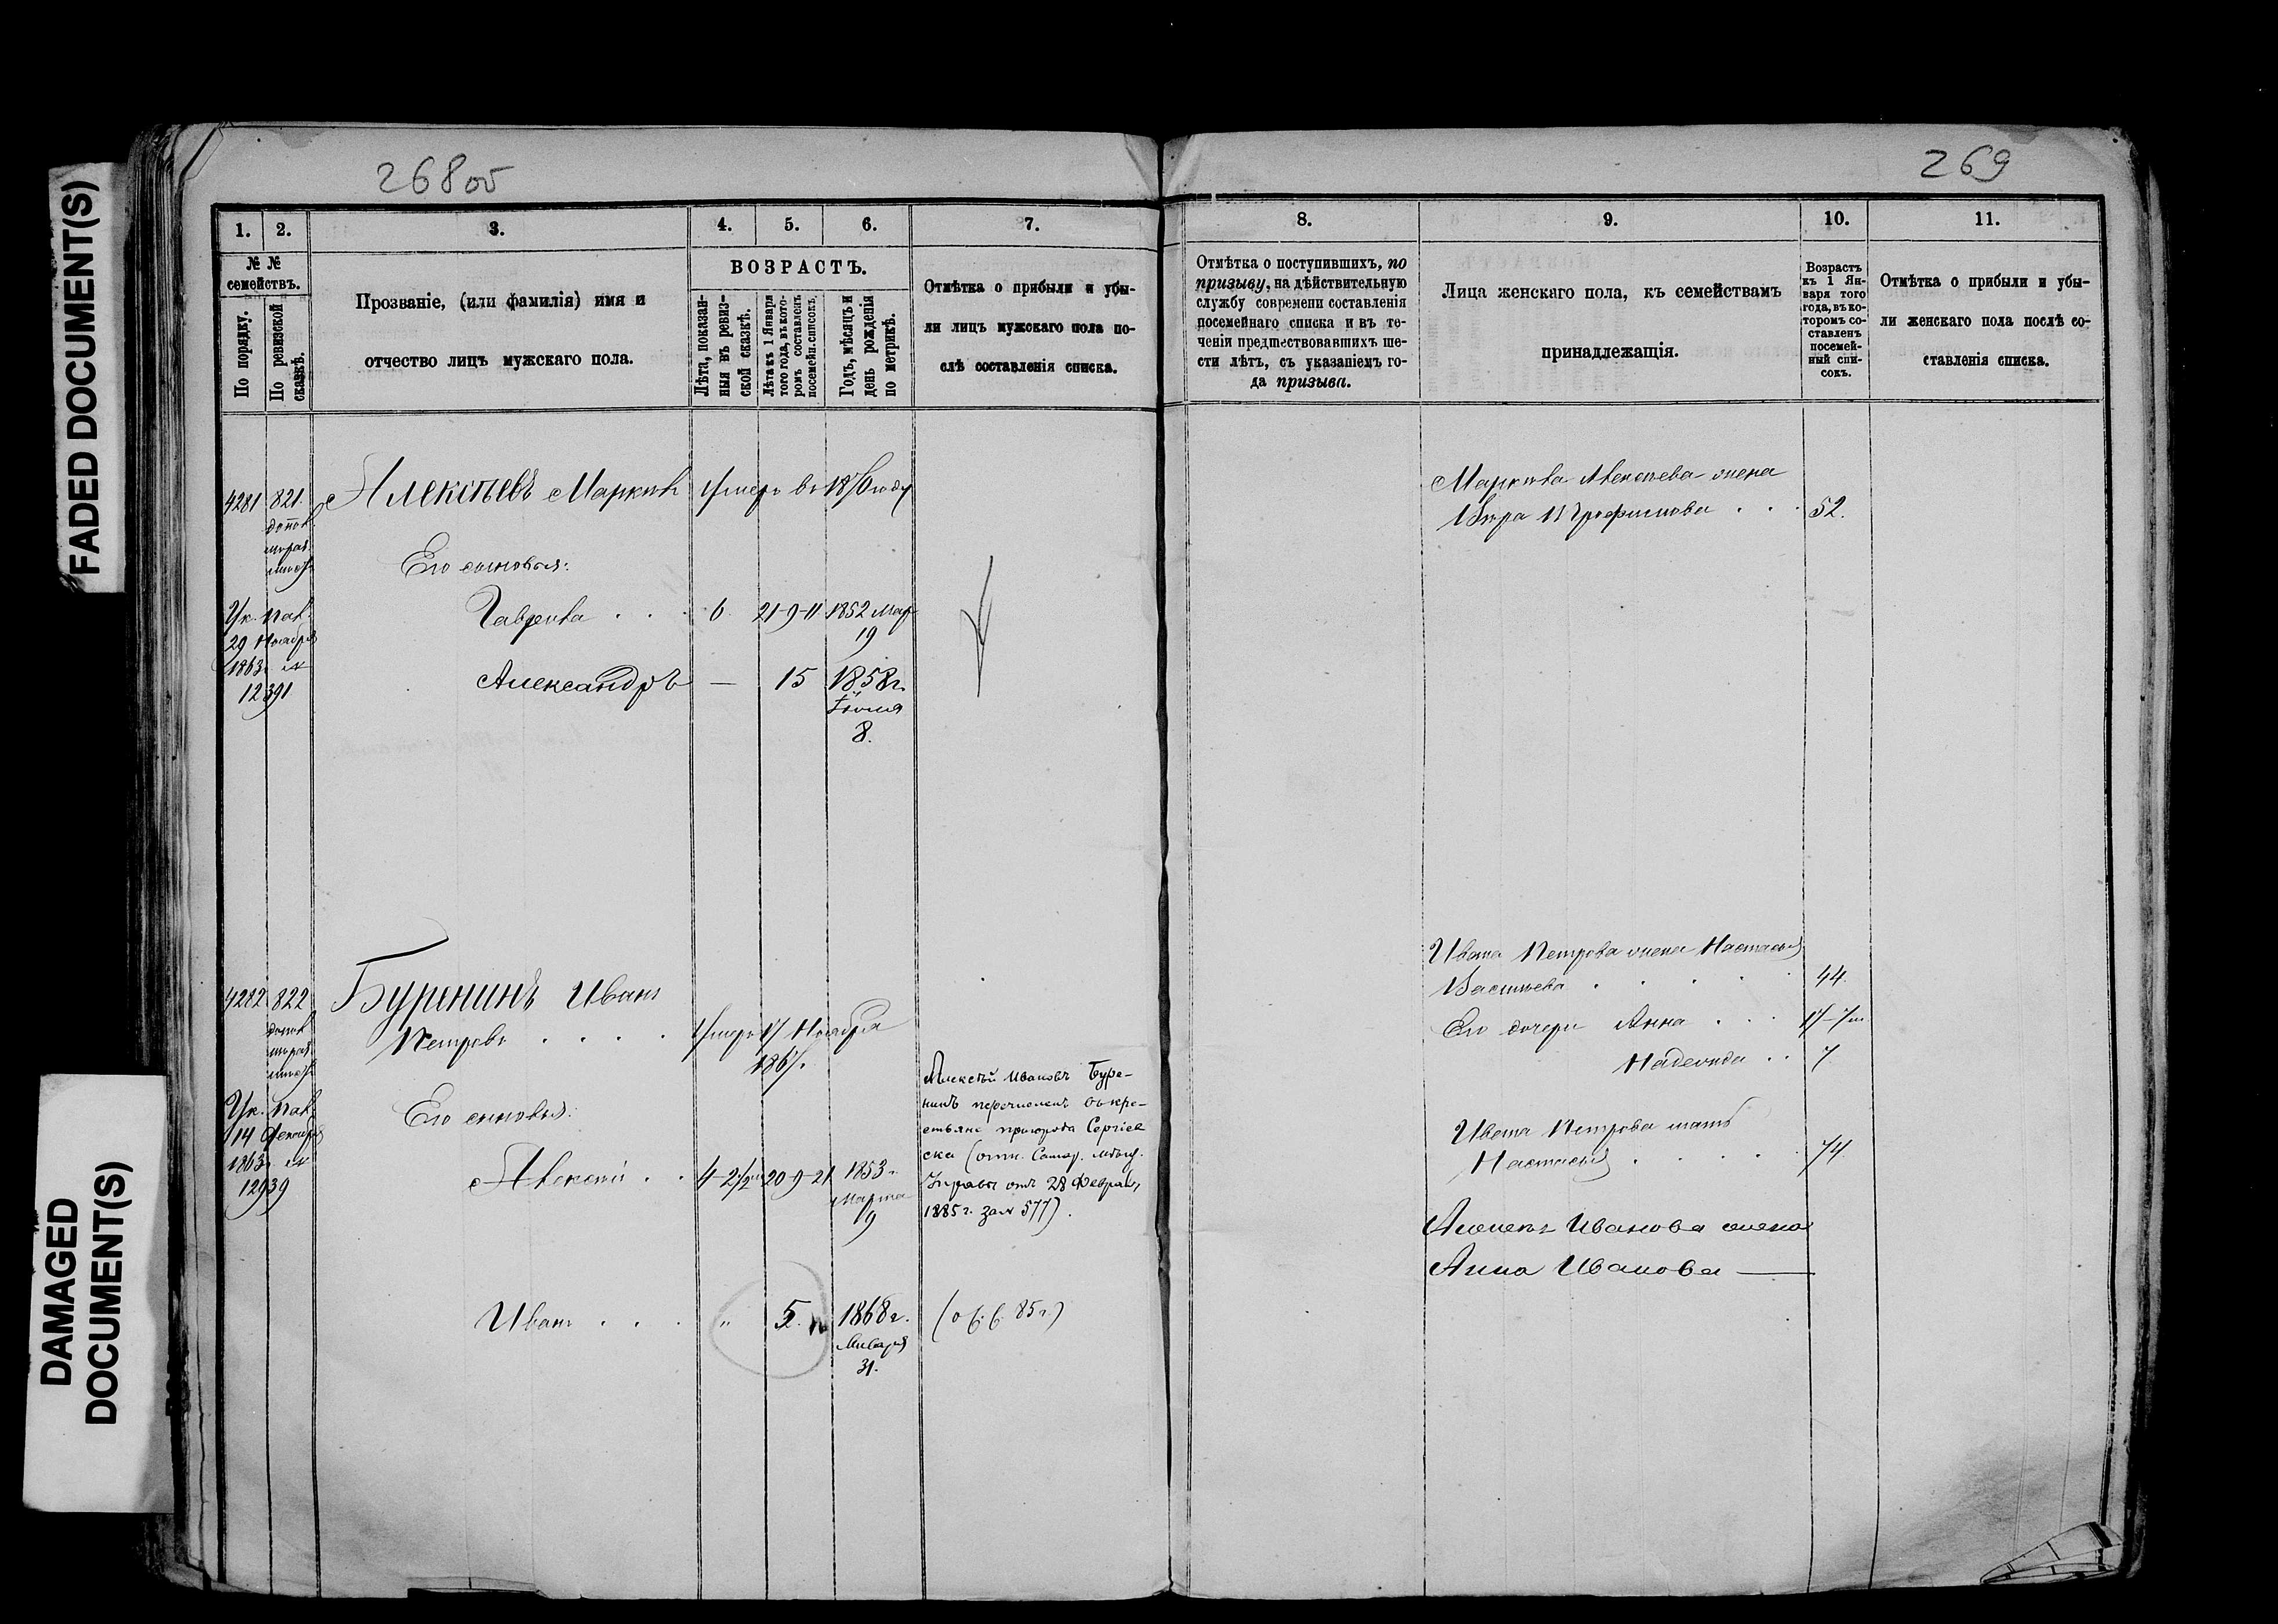 FADED DOCUMENT(S)
DAMAGED
DOCUMENT(S)
268об
1. 2. 3. 4. 5. 6. 7.
№ №
семействъ.
По порядку.
По ревизской
сказкѣ.
Прозваніе, (или фамилія) имя и
отчество лицъ мужскаго пола.
ВОЗРАСТЪ.
Лѣта, показан-
ныя въ ревиз-
ской сказкѣ.
Лѣта къ 1 Января
того года, въ кото-
ромъ составленъ
посемейн. списокъ.
Годъ, мѣсяцъ и
день рожденія
по метрикѣ.
Отмѣтка о прибыли и убы-
ли лицъ мужскаго пола по-
слѣ составленія списка.
4281 821. Алексѣевъ Маркъ Умеръ въ 1870 году
Его сыновья:
Ук. Пал.
29 Ноября
1863 №
12391
Гаврила . . . 6. 21-9-11 1852 Мар
19
Александръ — 15 1858г.
Іюля
8.
4282 822 Буренинъ Иванъ
Петровъ . . . . Умеръ 17 Ноября
186
Ук. Пал.
14 Декабря
1863 №
12939
Его сыновья:
Алексѣй . . 4-2 1/2 20-9-21 1853 г.
Марта
19
Алексѣй Ивановъ Буре-
нинъ перечисленъ въ кре-
стьяне пригорода Сергіев
ска (отн. Самар. мѣщ.
Управы отъ 28 Феврал,
1885 г. за № 577).
Иванъ . . . " 5. 1868 г.
Января
31.
(об. 85 г.)
269
8. 9. 10. 11.
Отмѣтка о поступившихъ, по
призыву, на дѣйствительную
службу современи составленія
посемейнаго списка и въ те-
ченіи предшествовавшихъ ше-
сти лѣтъ, съ указаніемъ го-
да призыва.
Лица женскаго пола, къ семействамъ
принадлежащія.
Возрастъ
къ 1 Ян-
варя того
года, въ ко-
торомъ со-
ставленъ
посемей-
ный спи-
сокъ.
Отмѣтка о прибыли и убы-
ли женскаго пола послѣ со-
ставленія списка.
Маркела Алексѣева жена
Вѣра Трофимова . . . 52.
Ивана Петрова жена Настасья
Васильева . . . . . 44.
Его дочери Анна . . . 17
Надежда . . 7
Ивана Петрова мать
Настасья . . . . . 74
Алексѣя Иванова жена
Анна Иванова —